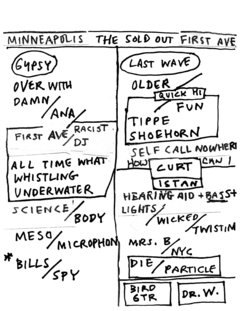 MINNEAPOLIS THE SOLD OUT FIRST AVE
GYPSY
OVER WITH
DAMN/
ANA/
FIRST AVE/RACIST
DJ
ALL TIME WHAT
WHISTLING
UNDERWATER
SCIENCE/
BODY
MESO/
MICROPHON
*BILLS/
SPY
LAST WAVE
OLDER/
QUICK HI
FUN
TIPPE
SHOEHORN
SELF CALL NOWHERE
HOW CAN I
CURT
ISTAN
HEARING AID + BASS +
LIGHTS/
WICKED/
TWISTIN
MRS. B/
NYC
DIE/
PARTICLE
BIRD
GTR
DR. W.